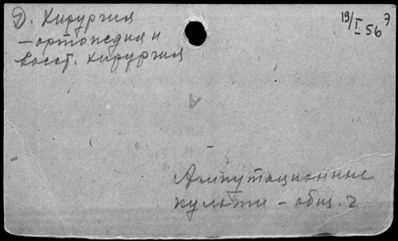 Д. Хирургия
19/I 56
– ортопедия и
восст. хирургия
Ампутационные
культи – общ. ч.